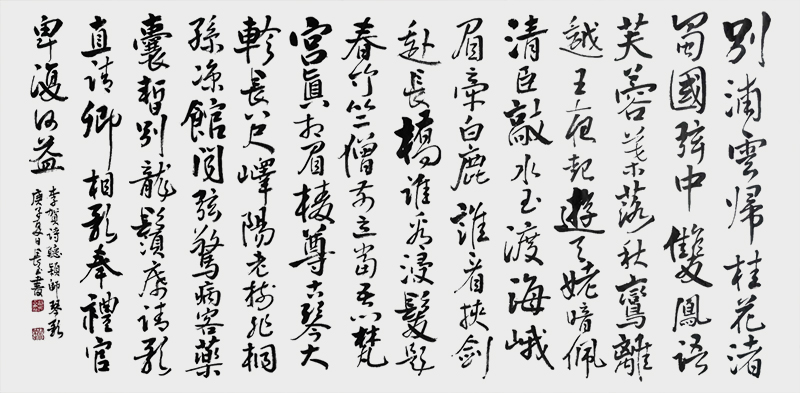 別浦雲歸桂花渚
蜀國弦中雙鳳語
芙蓉葉落秋鸞離
越王夜起遊天姥暗佩
清臣敲水玉渡海峨
眉牽白鹿誰看挾劍
赴長橋誰看浸髮題
春竹竺僧前立當吾梵
宮真相眉棱尊古琴大
軫長八尺嶧陽老樹非桐
孫涼館聞弦驚病客藥
囊暫別龍鬚席請歌
直請卿相歌奉禮官
卑復何益
李賀詩聽穎師琴歌
庚子夏日書